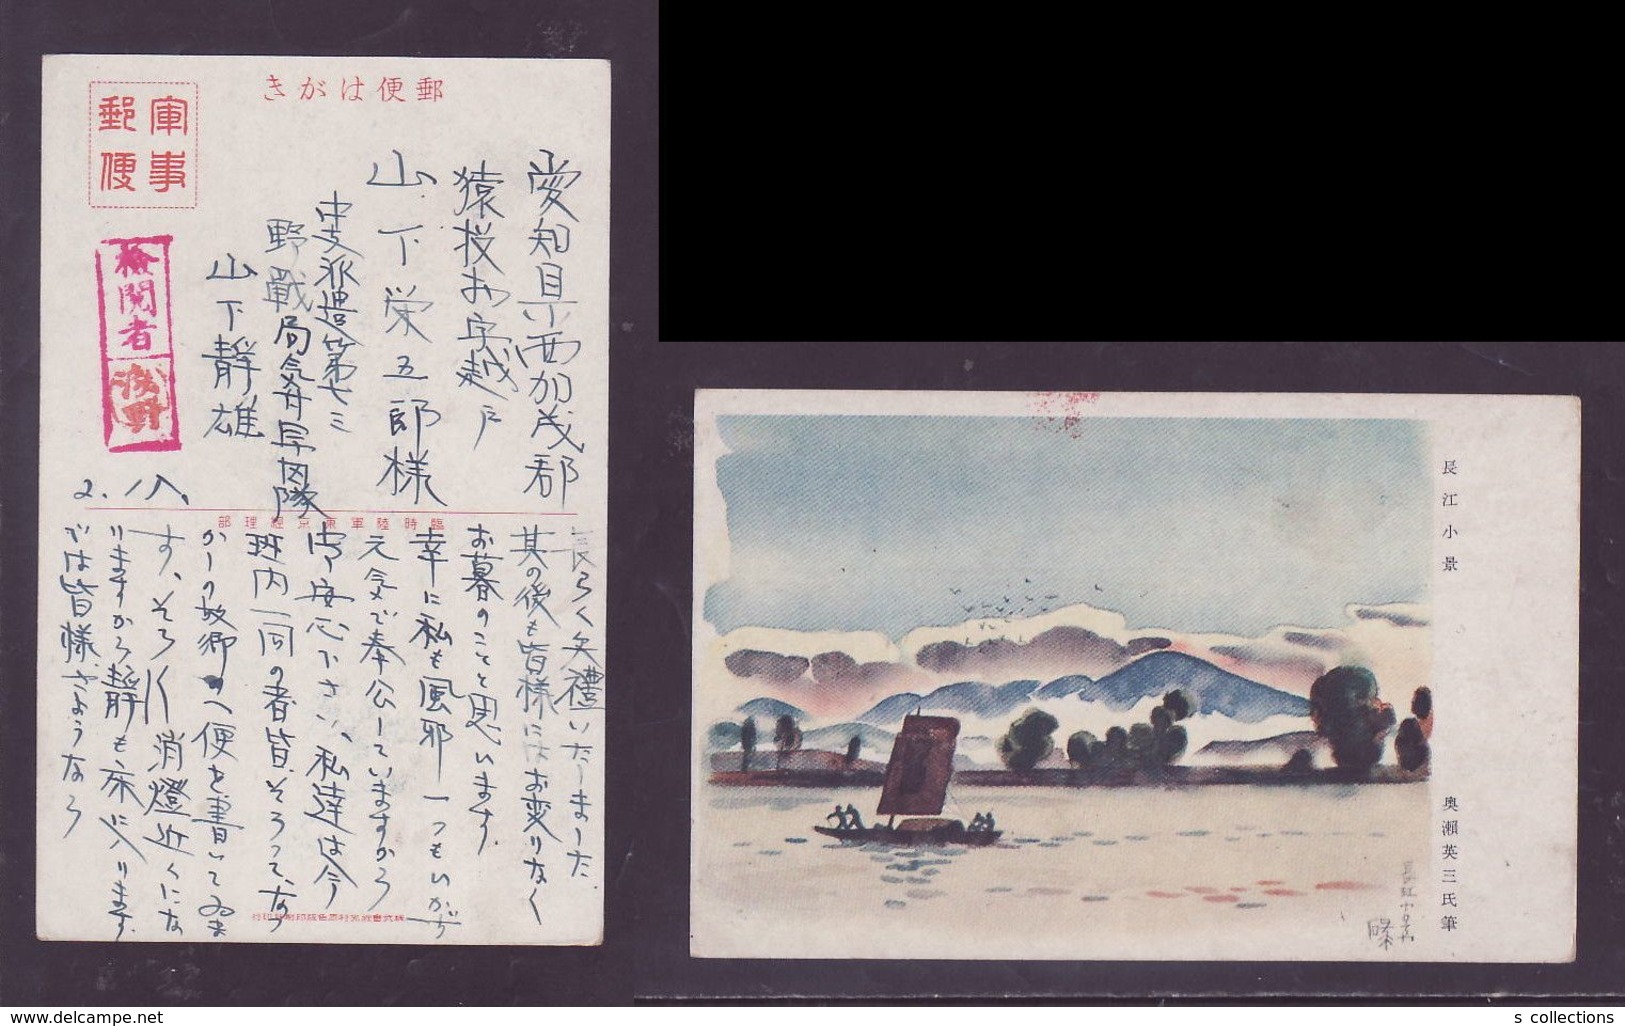 郵便はがき
軍事
郵便
検閲者
浅野
愛知県西加茂郡
猿投村字越戸
山下栄五郎様
中支派遣第七三
野戦局気付
山下靜雄
2.18.
臨時陸軍東京經理部
長らく失禮いたしました
其の後も皆様にはお変りなく
お暮のことと思います
幸に私も風邪一つもいがず
元気で奉公していますから
御安心下さい、私達は今
班内一同の者皆そろって、な
かしの故郷のへ便を書いてゐま
す、そろ〳〵消燈近くにな
りますから靜も床に入ります
では皆様さようなら
長江小景
奥瀬英三氏筆
delcampe.net
s collections